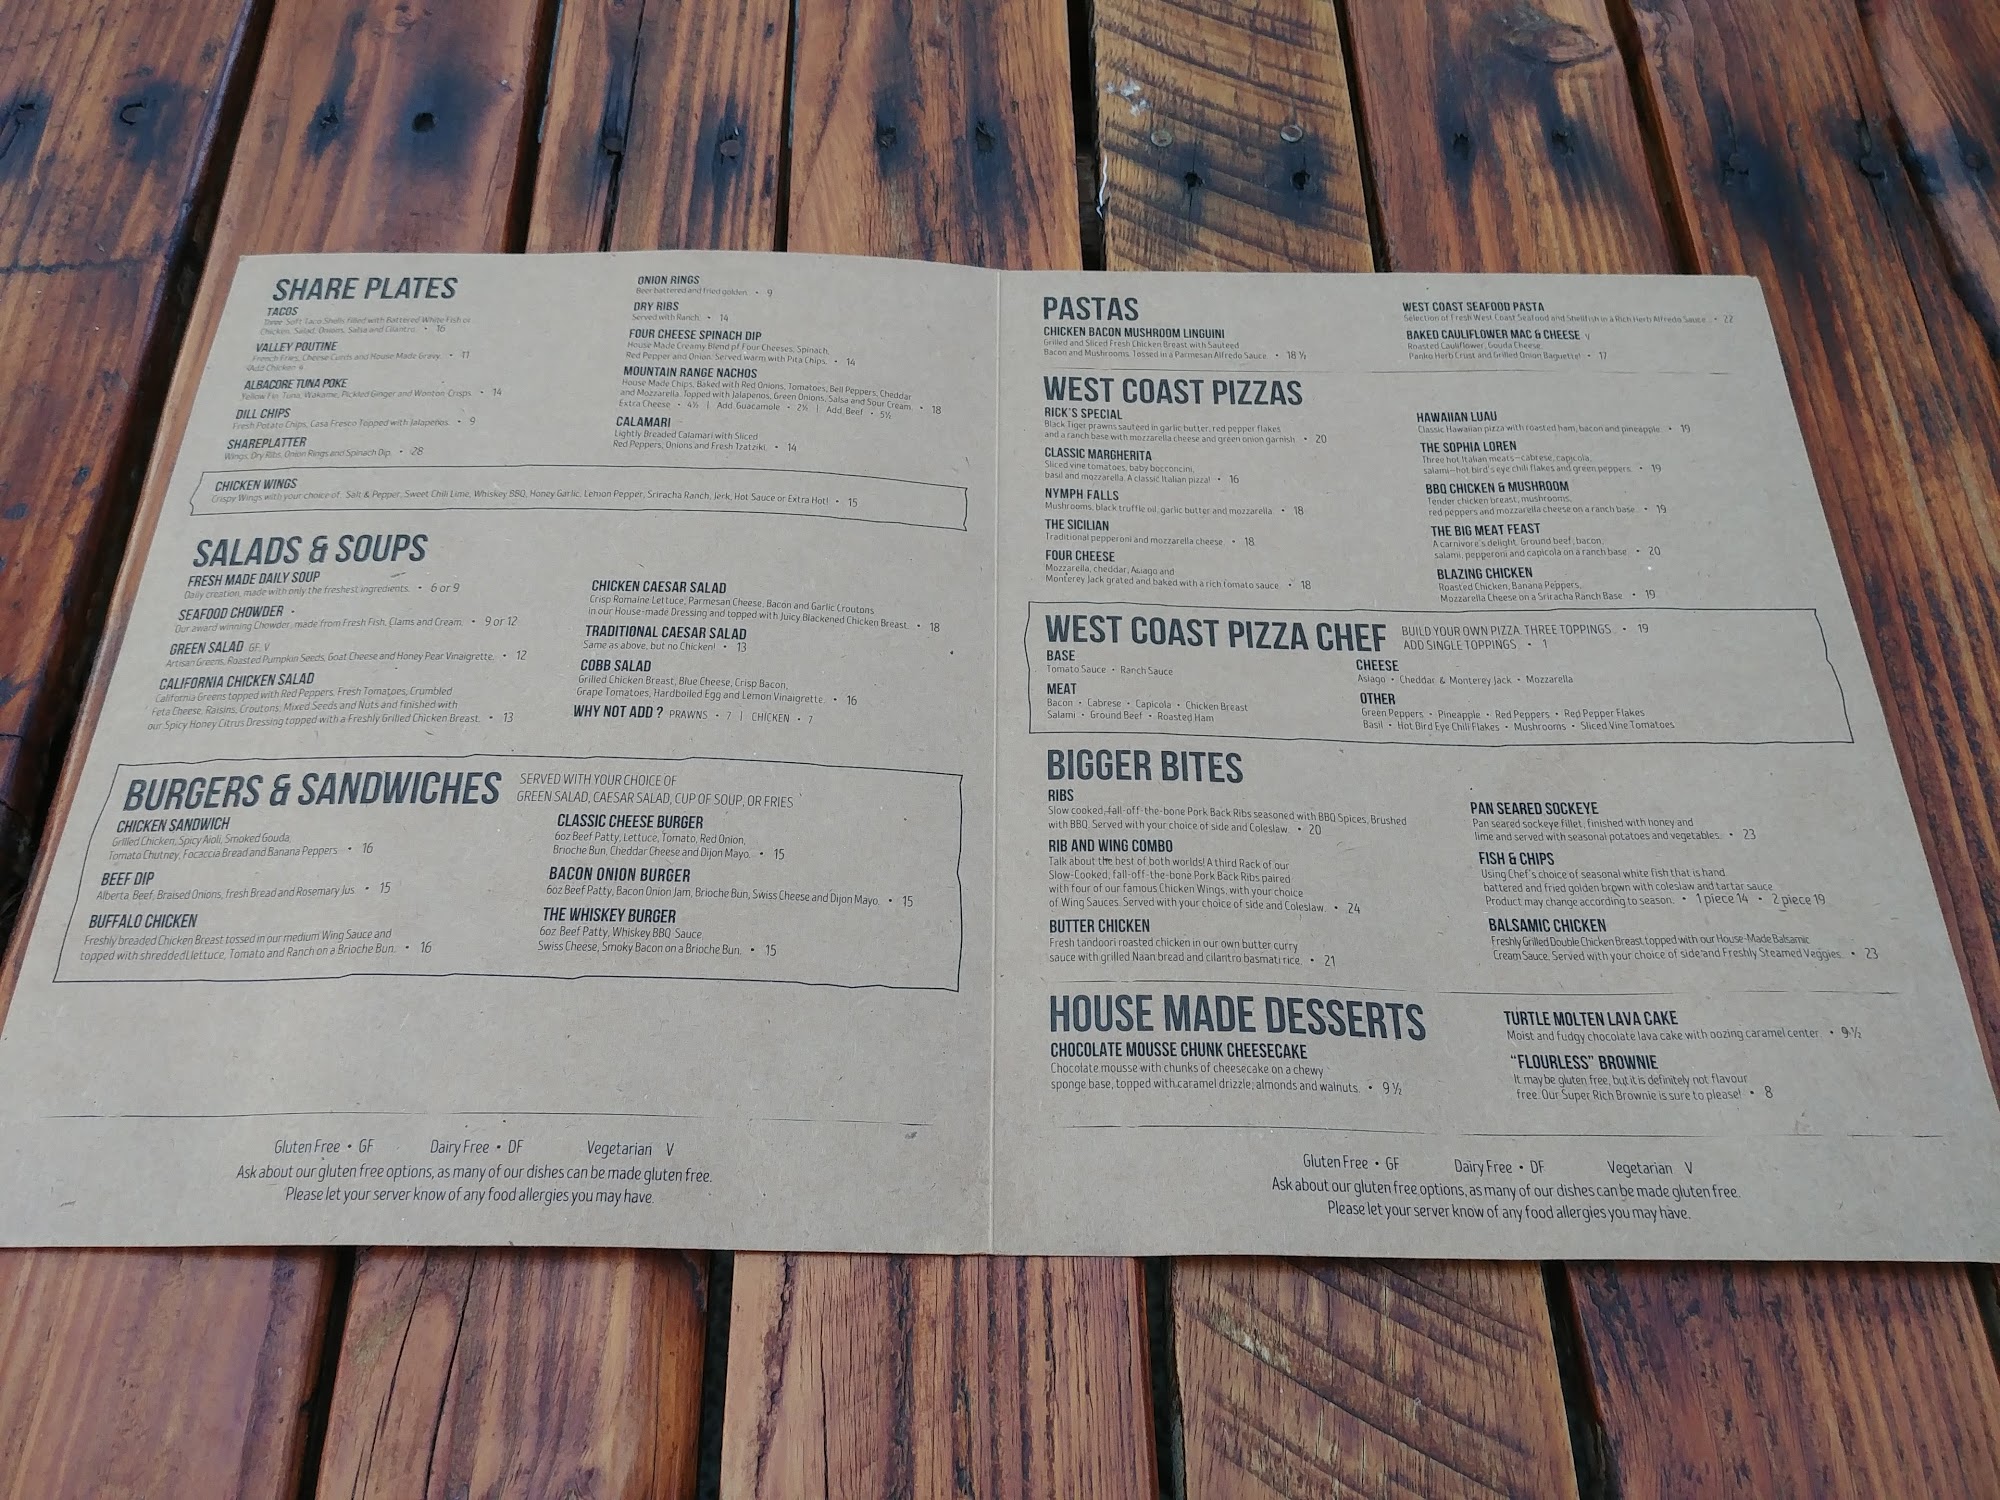 SHARE PLATES
TACOS
Three Soft Taco Shells filled with Battered White Fish or
Chicken, Salad, Onions, Salsa and Cilantro. • 16
VALLEY POUTINE
French Fries, Cheese Curds and House Made Gravy. • 11
Add Chicken 4
ALBACORE TUNA POKE
Yellow Fin Tuna, Wakame, Pickled Ginger and Wonton Crisps • 14
DILL CHIPS
Fresh Potato Chips, Casa Fresco Topped with Jalapeños. • 9
SHAREPLATTER
Wings, Dry Ribs, Onion Rings and Spinach Dip. • 28
ONION RINGS
Beer battered and fried golden. • 9
DRY RIBS
Served with Ranch. • 14
FOUR CHEESE SPINACH DIP
House Made Creamy Blend pf Four Cheeses, Spinach,
Red Pepper and Onion. Served warm with Pita Chips. • 14
MOUNTAIN RANGE NACHOS
House Made Chips, Baked with Red Onions, Tomatoes, Bell Peppers, Cheddar
and Mozzarella. Topped with Jalapenos, Green Onions, Salsa and Sour Cream. • 18
Extra Cheese • 4½ | Add Guacamole • 2½ | Add Beef • 5½
CALAMARI
Lightly Breaded Calamari with Sliced
Red Peppers, Onions and Fresh Tzatziki. • 14
CHICKEN WINGS
Crispy Wings with your choice of: Salt & Pepper, Sweet Chili Lime, Whiskey BBQ, Honey Garlic, Lemon Pepper, Sriracha Ranch, Jerk, Hot Sauce or Extra Hot! • 15
SALADS & SOUPS
FRESH MADE DAILY SOUP
Daily creation, made with only the freshest ingredients. • 6 or 9
SEAFOOD CHOWDER •
Our award winning Chowder, made from Fresh Fish, Clams and Cream. • 9 or 12
GREEN SALAD GF, V
Artisan Greens, Roasted Pumpkin Seeds, Goat Cheese and Honey Pear Vinaigrette. • 12
CALIFORNIA CHICKEN SALAD
California Greens topped with Red Peppers, Fresh Tomatoes, Crumbled
Feta Cheese, Raisins, Croutons, Mixed Seeds and Nuts and finished with
our Spicy Honey Citrus Dressing topped with a Freshly Grilled Chicken Breast. • 13
CHICKEN CAESAR SALAD
Crisp Romaine Lettuce, Parmesan Cheese, Bacon and Garlic Croutons
in our House-made Dressing and topped with Juicy Blackened Chicken Breast. • 18
TRADITIONAL CAESAR SALAD
Same as above, but no Chicken! • 13
COBB SALAD
Grilled Chicken Breast, Blue Cheese, Crisp Bacon,
Grape Tomatoes, Hardboiled Egg and Lemon Vinaigrette. • 16
WHY NOT ADD? PRAWNS • 7 | CHICKEN • 7
BURGERS & SANDWICHES
SERVED WITH YOUR CHOICE OF
GREEN SALAD, CAESAR SALAD, CUP OF SOUP, OR FRIES
CHICKEN SANDWICH
Grilled Chicken, Spicy Aioli, Smoked Gouda,
Tomato Chutney, Focaccia Bread and Banana Peppers • 16
BEEF DIP
Alberta Beef, Braised Onions, Fresh Bread and Rosemary Jus. • 15
BUFFALO CHICKEN
Freshly breaded Chicken Breast tossed in our medium Wing Sauce and
topped with shreddedLlettuce, Tomato and Ranch on a Brioche Bun. • 16
CLASSIC CHEESE BURGER
6oz Beef Patty, Lettuce, Tomato, Red Onion,
Brioche Bun, Cheddar Cheese and Dijon Mayo. • 15
BACON ONION BURGER
6oz Beef Patty, Bacon Onion Jam, Brioche Bun, Swiss Cheese and Dijon Mayo. • 15
THE WHISKEY BURGER
6oz Beef Patty, Whiskey BBQ Sauce,
Swiss Cheese, Smoky Bacon on a Brioche Bun. • 15
Gluten Free • GF Dairy Free • DF Vegetarian V
Ask about our gluten free options, as many of our dishes can be made gluten free.
Please let your server know of any food allergies you may have.
PASTAS
CHICKEN BACON MUSHROOM LINGUINI
Grilled and Sliced Fresh Chicken Breast with Sauteed
Bacon and Mushrooms. Tossed in a Parmesan Alfredo Sauce. • 18 ½
WEST COAST SEAFOOD PASTA
Selection of Fresh West Coast Seafood and Shellfish in a Rich Herb Alfredo Sauce. • 22
BAKED CAULIFLOWER MAC & CHEESE V
Roasted Cauliflower, Gouda Cheese,
Panko Herb Crust and Grilled Onion Baguette! • 17
WEST COAST PIZZAS
RICK'S SPECIAL
Black Tiger prawns sauteed in garlic butter, red pepper flakes
and a ranch base with mozzarella cheese and green onion garnish. • 20
CLASSIC MARGHERITA
Sliced vine tomatoes, baby bocconcini,
basil and mozzarella. A classic Italian pizza! • 16
NYMPH FALLS
Mushrooms, black truffle oil, garlic butter and mozzarella. • 18
THE SICILIAN
Traditional pepperoni and mozzarella cheese. • 18
FOUR CHEESE
Mozzarella, cheddar, Asiago and
Monterey Jack grated and baked with a rich tomato sauce. • 18
HAWAIIAN LUAU
Classic Hawaiian pizza with roasted ham, bacon and pineapple. • 19
THE SOPHIA LOREN
Three hot Italian meats—cabrese, capicola,
salami—hot bird's eye chili flakes and green peppers. • 19
BBQ CHICKEN & MUSHROOM
Tender chicken breast, mushrooms,
red peppers and mozzarella cheese on a ranch base. • 19
THE BIG MEAT FEAST
A carnivore's delight. Ground beef, bacon,
salami, pepperoni and capicola on a ranch base. • 20
BLAZING CHICKEN
Roasted Chicken, Banana Peppers,
Mozzarella Cheese on a Sriracha Ranch Base • 19
WEST COAST PIZZA CHEF
BUILD YOUR OWN PIZZA. THREE TOPPINGS • 19
ADD SINGLE TOPPINGS. • 1
BASE
Tomato Sauce • Ranch Sauce
MEAT
Bacon • Cabrese • Capicola • Chicken Breast
Salami • Ground Beef • Roasted Ham
CHEESE
Asiago • Cheddar & Monterey Jack • Mozzarella
OTHER
Green Peppers • Pineapple • Red Peppers • Red Pepper Flakes
Basil • Hot Bird Eye Chili Flakes • Mushrooms • Sliced Vine Tomatoes
BIGGER BITES
RIBS
Slow cooked, fall-off-the-bone Pork Back Ribs seasoned with BBQ Spices, Brushed
with BBQ. Served with your choice of side and Coleslaw. • 20
RIB AND WING COMBO
Talk about the best of both worlds! A third Rack of our
Slow-Cooked, fall-off-the-bone Pork Back Ribs paired
with four of our famous Chicken Wings, with your choice
of Wing Sauces. Served with your choice of side and Coleslaw. • 24
BUTTER CHICKEN
Fresh tandoori roasted chicken in our own butter curry
sauce with grilled Naan bread and cilantro basmati rice. • 21
PAN SEARED SOCKEYE
Pan seared sockeye fillet, finished with honey and
lime and served with seasonal potatoes and vegetables. • 23
FISH & CHIPS
Using Chef's choice of seasonal white fish that is hand
battered and fried golden brown with coleslaw and tartar sauce.
Product may change according to season. • 1 piece 14 • 2 piece 19
BALSAMIC CHICKEN
Freshly Grilled Double Chicken Breast topped with our House-Made Balsamic
Cream Sauce. Served with your choice of side and Freshly Steamed Veggies. • 23
HOUSE MADE DESSERTS
CHOCOLATE MOUSSE CHUNK CHEESECAKE
Chocolate mousse with chunks of cheesecake on a chewy
sponge base, topped with caramel drizzle, almonds and walnuts. • 9 ½
TURTLE MOLTEN LAVA CAKE
Moist and fudgy chocolate lava cake with oozing caramel center. • 9 ½
"FLOURLESS" BROWNIE
It may be gluten free, but it is definitely not flavour
free. Our Super Rich Brownie is sure to please! • 8
Gluten Free • GF Dairy Free • DF Vegetarian V
Ask about our gluten free options, as many of our dishes can be made gluten free.
Please let your server know of any food allergies you may have.